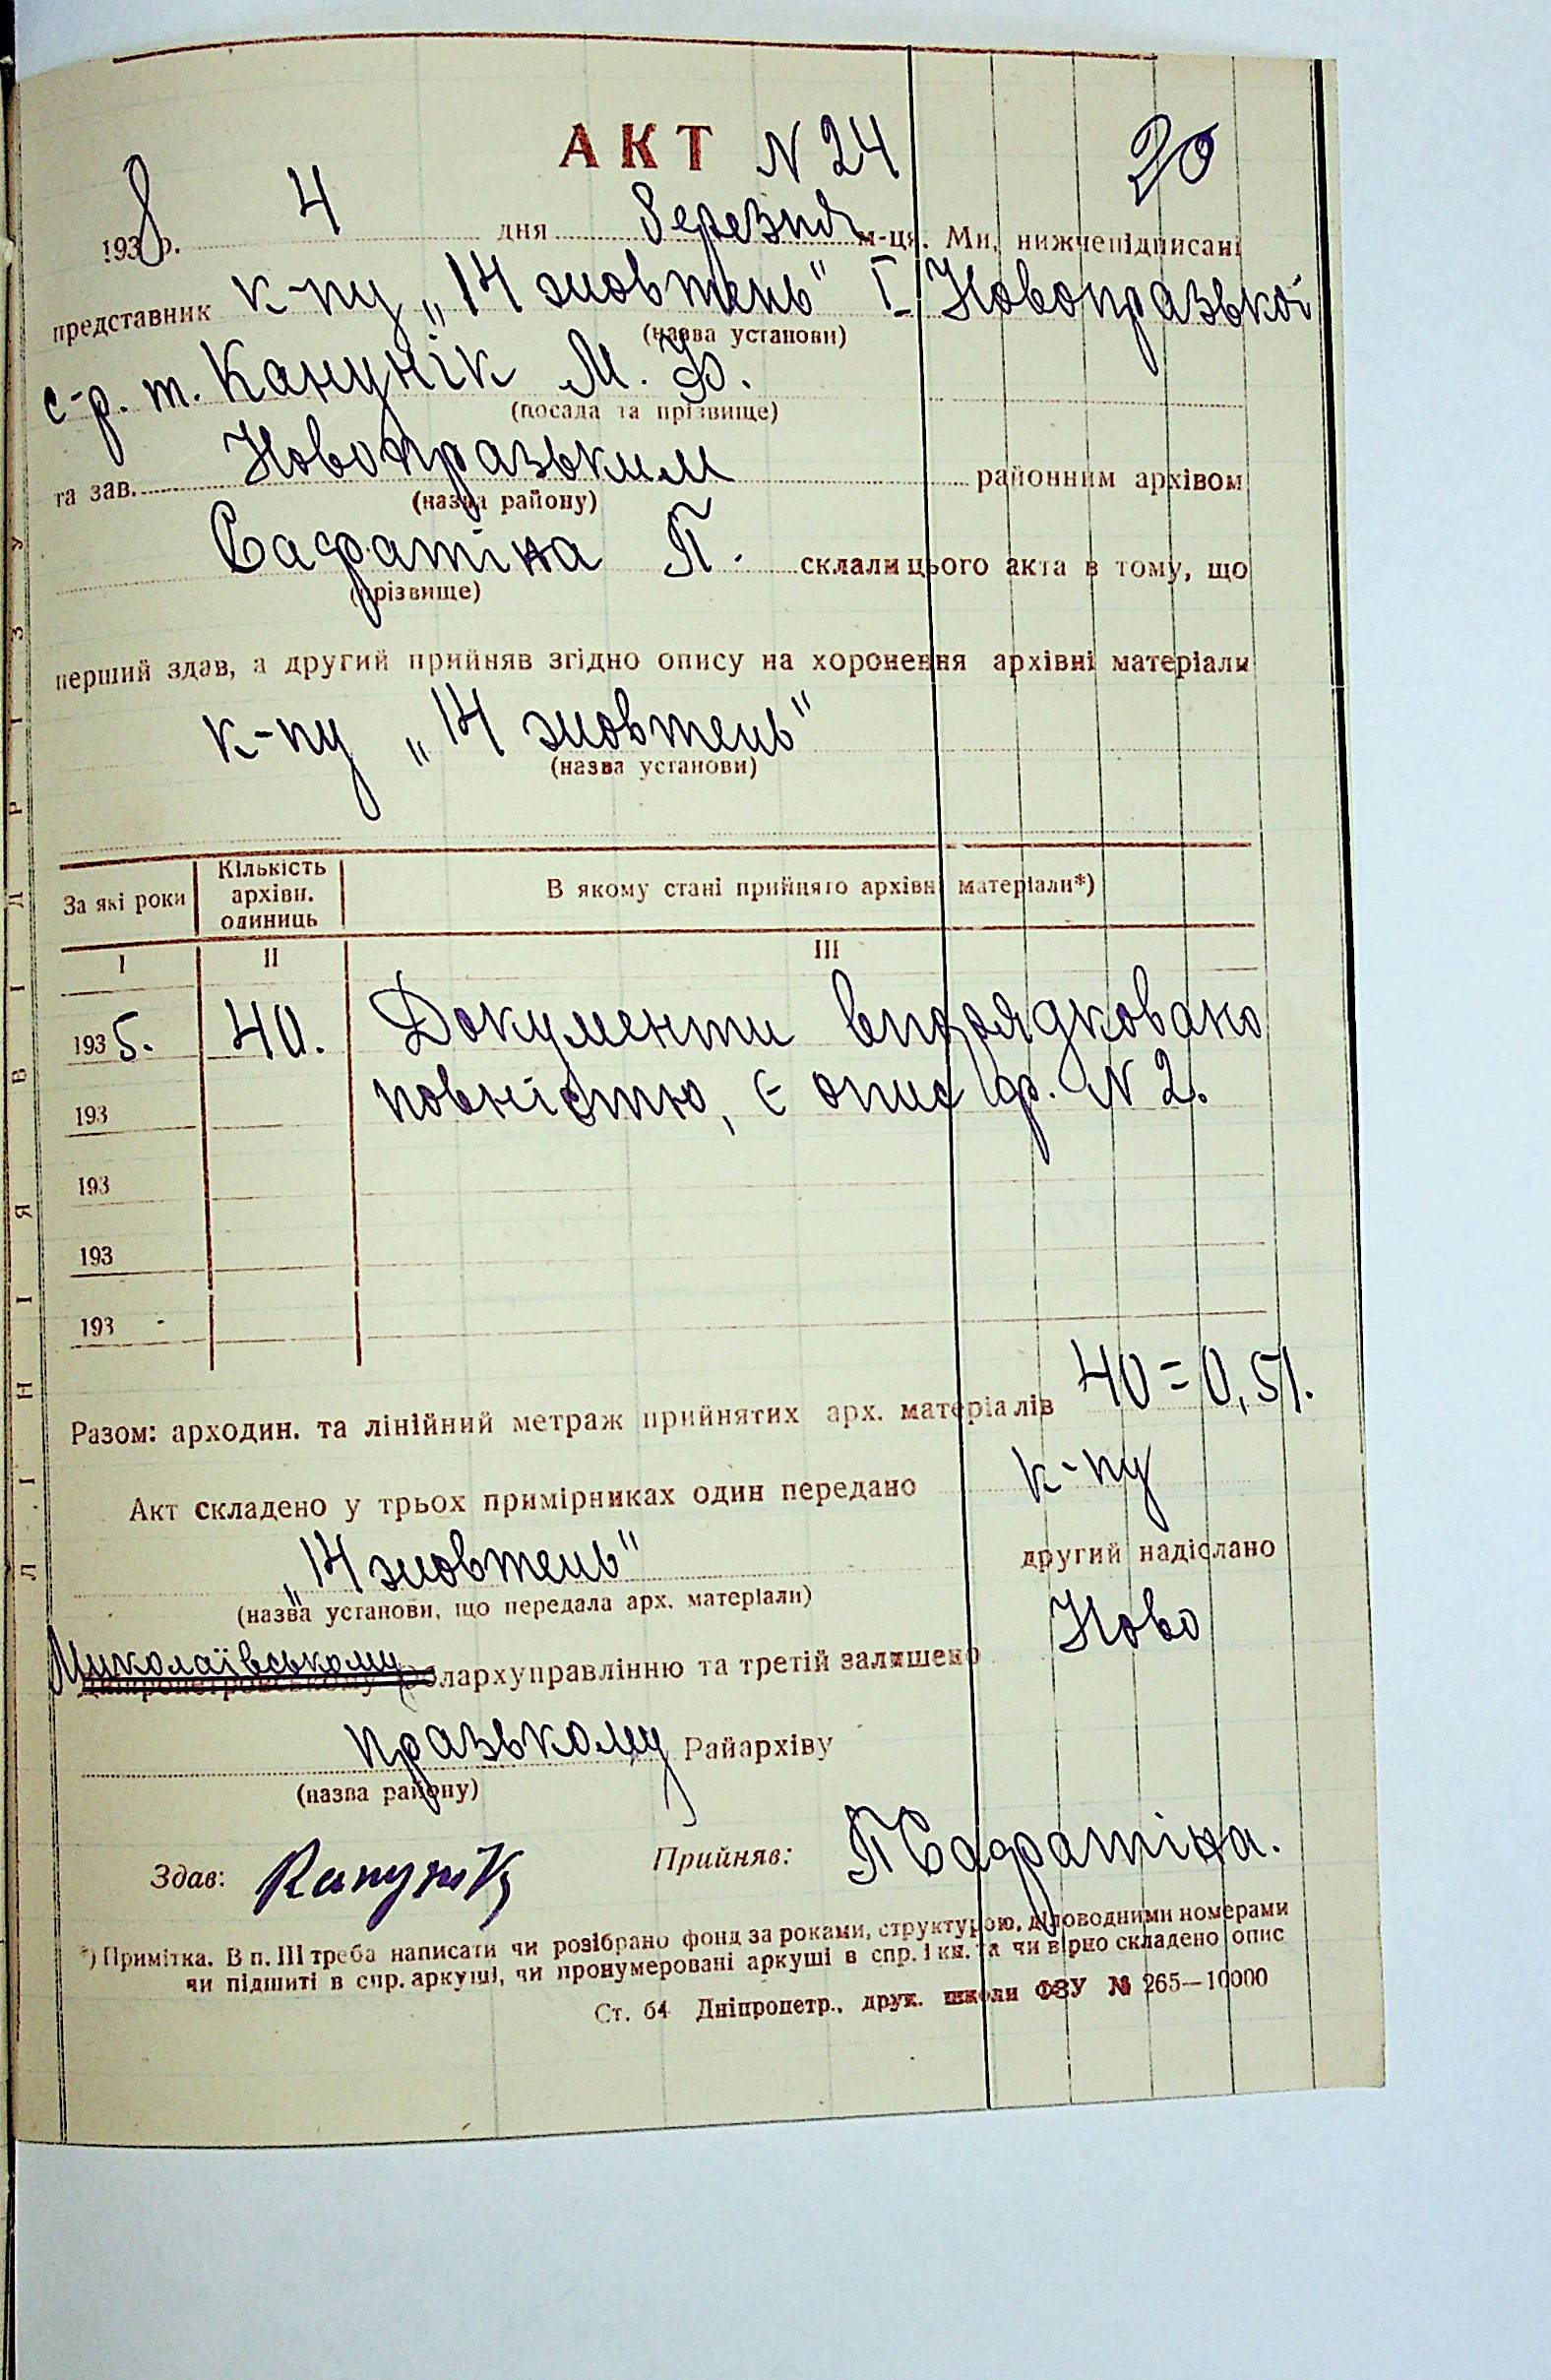 АКТ N 24
20
1938 р. 4 дня березня м-ця. Ми, нижчепідписані
представник к-пу „14 жовтень" І Новопразької
(назва установи)
с-р. т. Канунік М. Ф.
(посада та прізвище)
та зав. Новопразьким районним архівом
(назва району)
Сафатіна П. склали цього акта в тому, що
(прізвище)
перший здав, а другий прийняв згідно опису на хоронення архівні матеріали
к-пу „14 жовтень"
(назва установи)
За які роки
Кількість архівн. одиниць
В якому стані прийнято архівні матеріали*)
І ІІ ІІІ
1935. 40. Документи впорядковано
193 повністю, є опис ф. N 2.
193
193
193
Разом: арходин. та лінійний метраж прийнятих арх. матеріалів 40=0,5
Акт складено у трьох примірниках один передано к-пу
„14 жовтень" другий надіслано
(назва установи, що передала арх. матеріали)
Миколаївському
Дніпропетровському Облархуправлінню та третій залишено Ново
празькому Райархіву
(назва району)
Здав: Канунік Прийняв: П Сафатіна.
*) Примітка. В п. ІІІ треба написати чи розібрано фонд за роками, структурою, діловодними номерами
чи підшиті в спр. аркуші, чи пронумеровані аркуші в спр. і кн. та чи вірно складено опис
Ст. 64 Дніпропетр., друк. школи ФЗУ № 265—10000
ЛІНІЯ ВІДРІЗУ